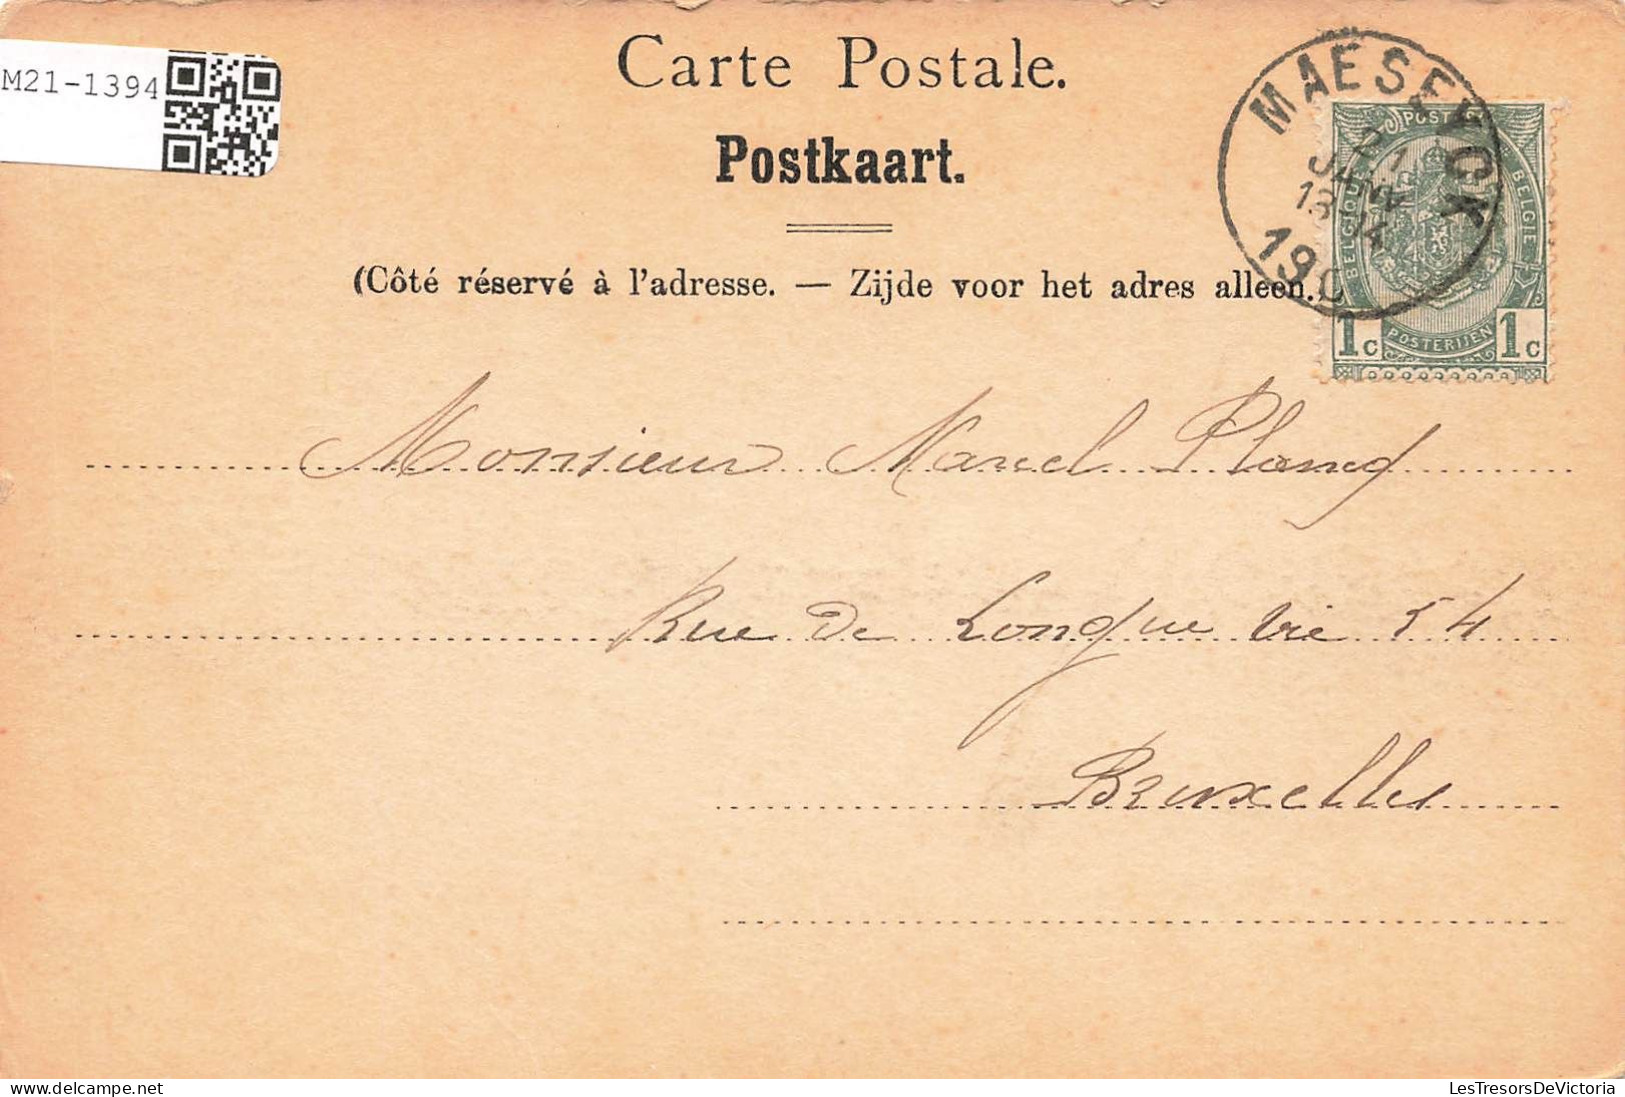 M21-1394
Carte Postale.
Postkaart.
(Côté réservé à l'adresse. — Zijde voor het adres alleen.)
MAESEYCK
21
JANV
13-14
190
POSTES
BELGIQUE
BELGIË
POSTERIJEN
1c 1c
Monsieur Marcel
Rue De Longue Vie 54
Bruxelles
LesTresorsDeVictoria
delcampe.net